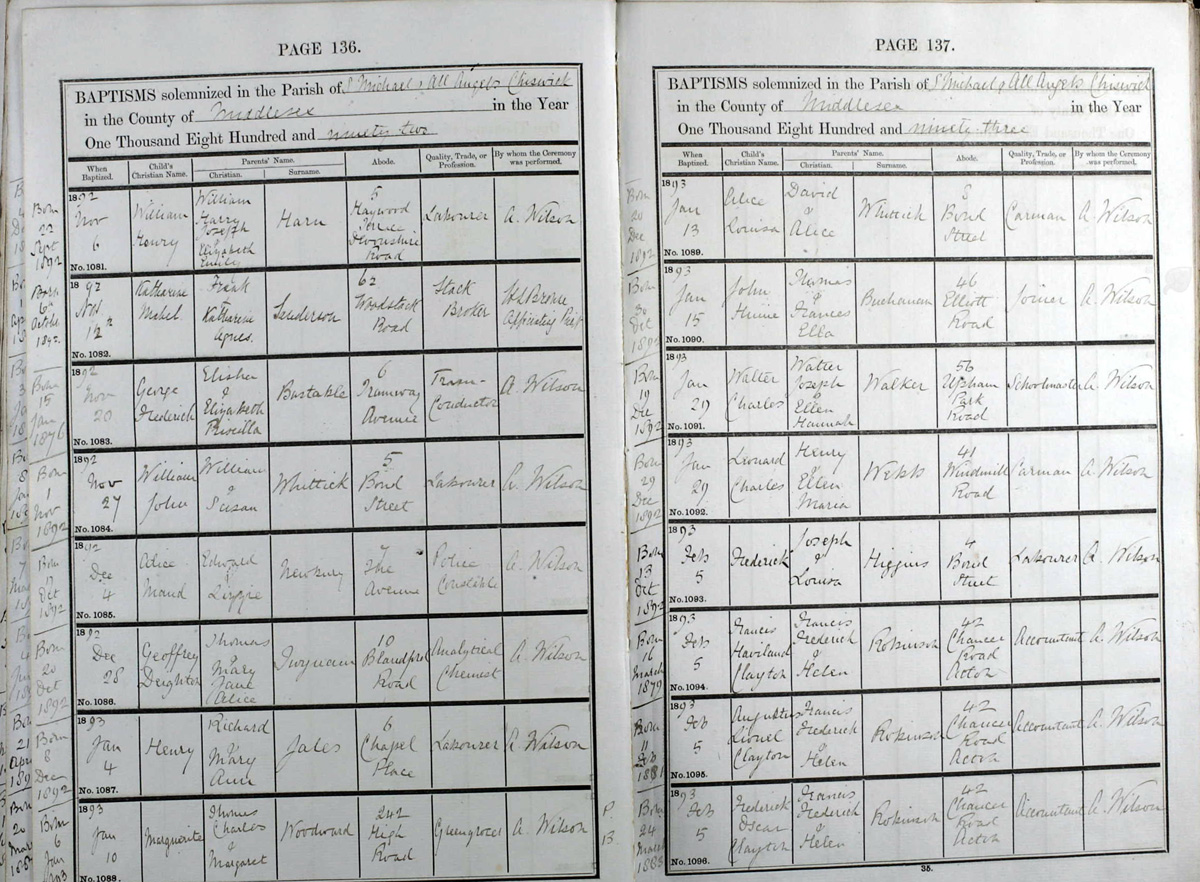 PAGE 136.
BAPTISMS solemnized in the Parish of S Michael & All Angels Chiswick
in the County of Middlesex in the Year
One Thousand Eight Hundred and ninety two
When Baptized. Child's Christian Name. Parents' Name. Christian. Surname. Abode. Quality, Trade, or Profession. By whom the Ceremony was performed.
Born 22 Sept 1892
1892 Nov 6 William Henry William Harry Joseph & Elizabeth Emily Harn 5 Haywood Terrace Devonshire Road Labourer A. Wilson
No. 1081.
Born 6 October 1892
1892 Nov 12 Katharine Mabel Frank & Katharine Agnes Sanderson 62 Woodstock Road Stock Broker
No. 1082.
Born 15 Jan 1876
1892 Nov 20 George Frederick Elisha & Elizabeth Priscilla Bastable 6 Tramway Avenue Tram-Conductor A. Wilson
No. 1083.
Born 1 Nov 1892
1892 Nov 27 William John William & Susan Whittick 5 Bond Street Labourer A. Wilson
No. 1084.
Born Oct 1892
1892 Dec 4 Alice Maud Edward & Lizzie Newbury 7 The Avenue Police Constable A. Wilson
No. 1085.
Born 20 Oct 1892
1892 Dec 28 Geoffrey Deighton Thomas & Mary Jane Alice Twynam 10 Blandford Road Analytical Chemist A. Wilson
No. 1086.
Born 8 Dec 1892
1893 Jan 4 Henry Richard & Mary Ann Jales 6 Chapel Place Labourer A. Wilson
No. 1087.
Born 6 Jan
1893 Jan 10 Marguerite Thomas Charles & Margaret Woodward 242 High Road Greengrocer A. Wilson
No. 1088.
P. B.
PAGE 137.
BAPTISMS solemnized in the Parish of S Michael & All Angels Chiswick
in the County of Middlesex in the Year
One Thousand Eight Hundred and ninety-three
When Baptized. Child's Christian Name. Parents' Name. Christian. Surname. Abode. Quality, Trade, or Profession. By whom the Ceremony was performed.
Born 20 Dec 1892
1893 Jan 13 Alice Louisa David & Alice Whittick 8 Bond Street Carman A. Wilson
No. 1089.
Born 30 Oct 1892
1893 Jan 15 John Thomas & Frances Ella Buchanan 46 Elliott Road Joiner A. Wilson
No. 1090.
Born 19 Dec 1892
1893 Jan 29 Walter Charles Walter Joseph & Ellen Hannah Walker 56 Upham Park Road Schoolmaster A. Wilson
No. 1091.
Born 29 Dec 1892
1893 Jan 29 Leonard Charles Henry & Ellen Maria Webb 41 Windmill Road Carman A. Wilson
No. 1092.
Born 13 Oct 1892
1893 Feb 5 Frederick Joseph & Louisa Higgins 4 Bond Street Labourer A. Wilson
No. 1093.
Born 16 March 1879
1893 Feb 5 Francis Haviland Clayton Francis Frederick & Helen Robinson 42 Chancer Road Acton Accountant A. Wilson
No. 1094.
Born 11 Feb 1881
1893 Feb 5 Augustus Lionel Clayton Francis Frederick & Helen Robinson 42 Chancer Road Acton Accountant A. Wilson
No. 1095.
Born 24 March 1885
1893 Feb 5 Frederick Oscar Clayton Francis Frederick & Helen Robinson 42 Chancer Road Acton Accountant A. Wilson
No. 1096.
35.